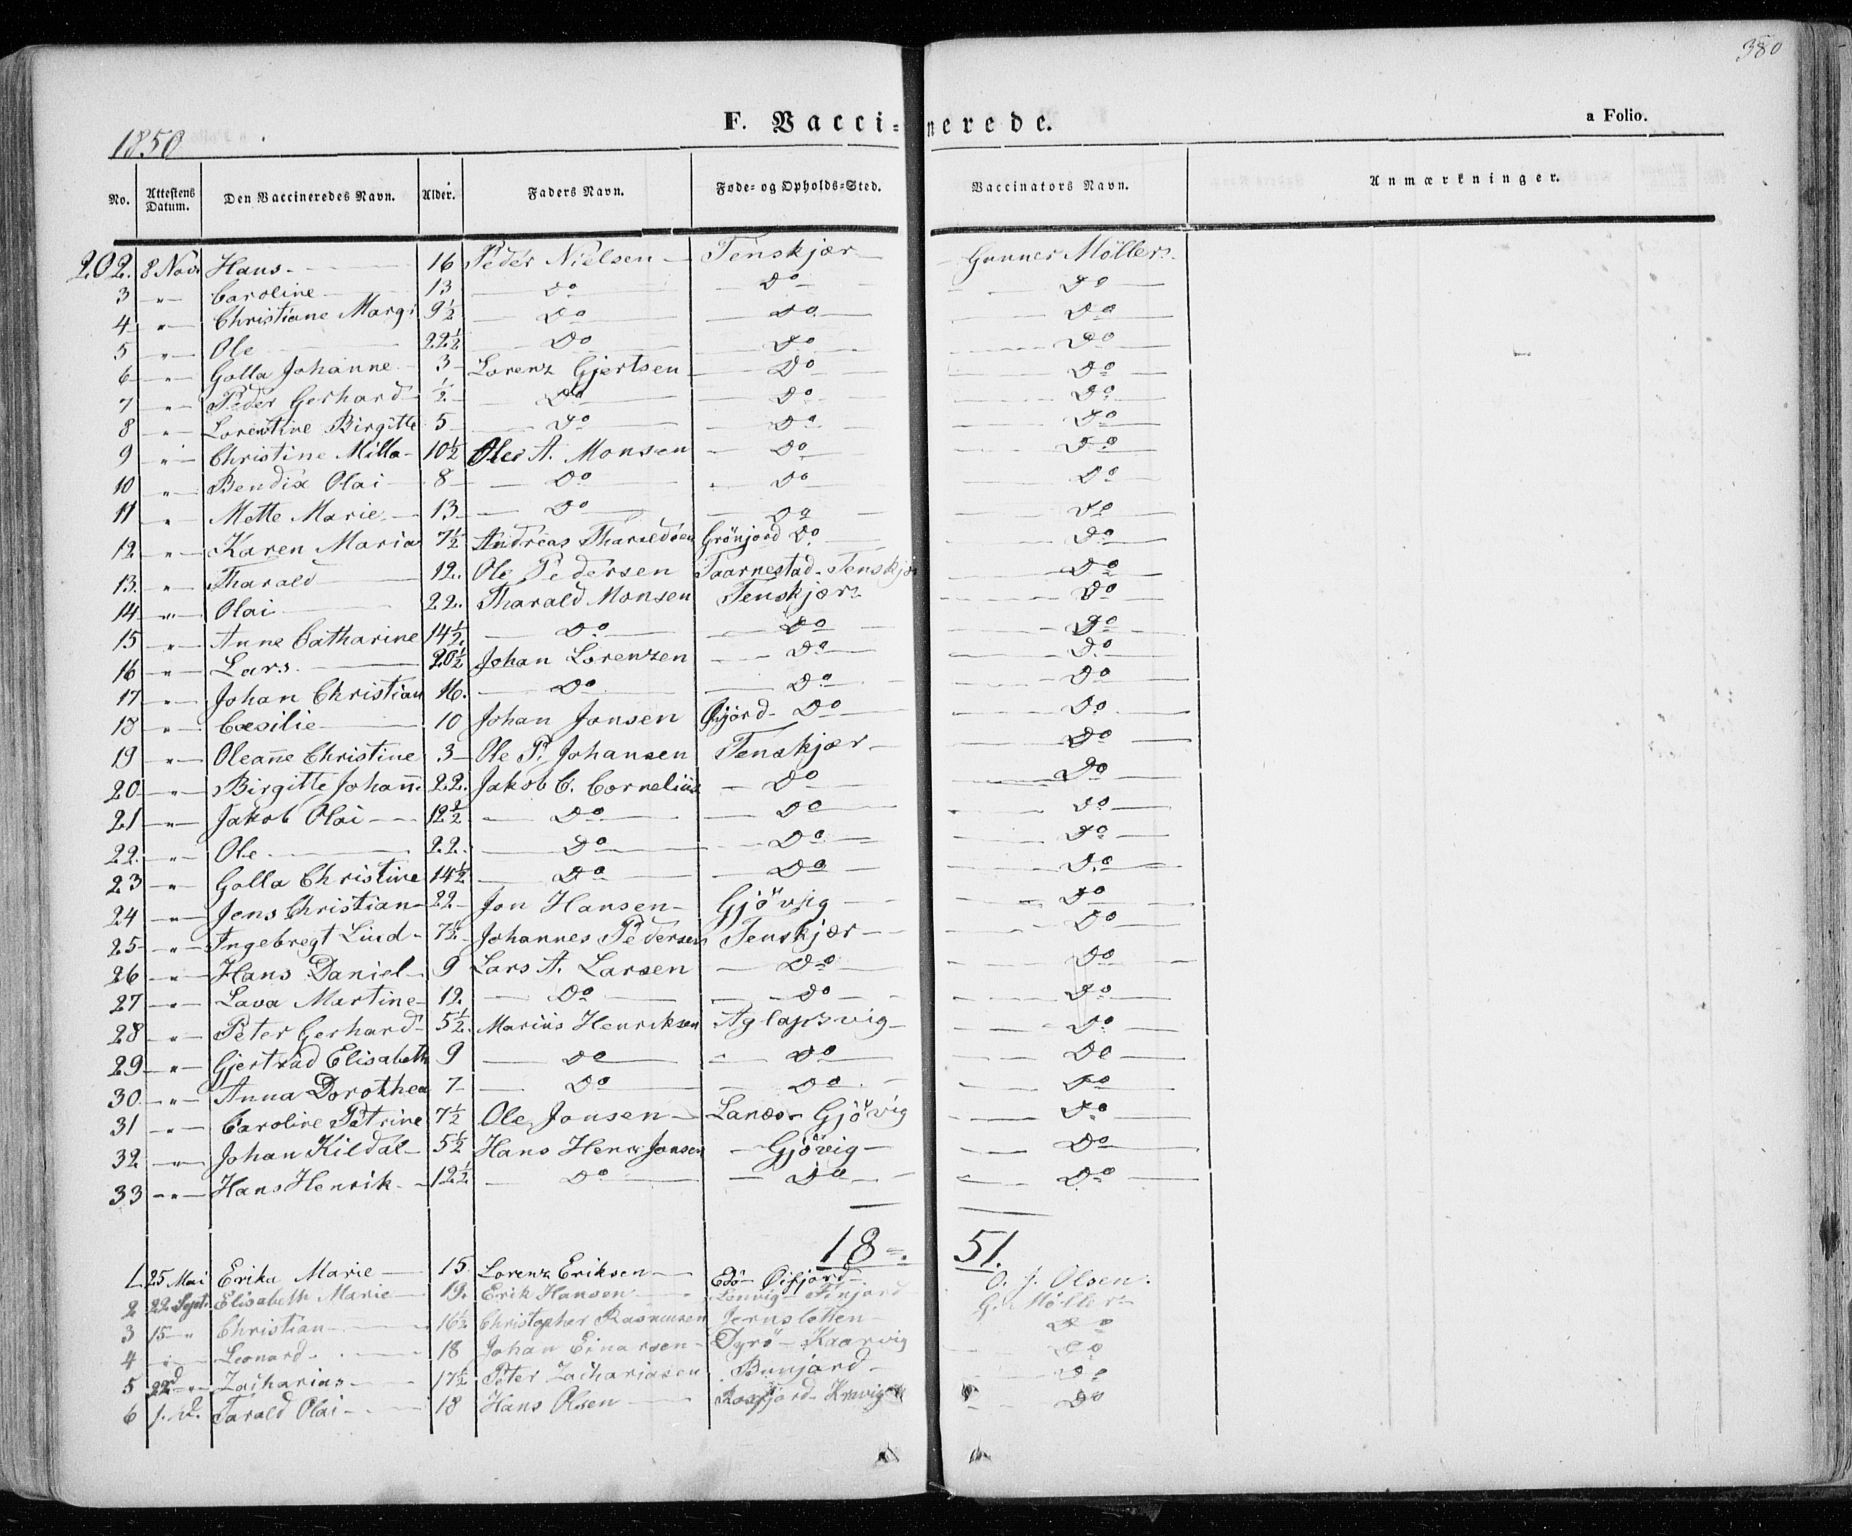 380
F. Vaccinerede.
a Folio.
1850
No. Attestens Datum. Den Vaccineredes Navn. Alder. Faders Navn. Føde- og Opholds-Sted. Vaccinators Navn. Anmærkninger.
202. 8 Novr Hans 16 Peder Nielsen Tenskjær Gunner Möller
3 " Caroline 13 Do Do Do
4 " Christiane Margr 9½ Do Do Do
5 " Ole 22½ Do Do Do
6 " Golla Johanne 3 Lorenz Gjertsen Do Do
7 " Peder Gerhard ½ Do Do Do
8 " Lorentine Birgitte 5 Do Do Do
9 " Christine Milla 10½ Ole A. Monsen Do Do
10 " Bendix Olai 8 Do Do Do
11 " Mette Marie 13 Do Do Do
12 " Karen Maria 7½ Andreas Grönjord Do Do
13. " Tharald 12. Ole Pedersen Taarnestad Tenskjær Do
14 " Olai 22. Tharald Monsen Tenskjær Do
15 " Anne Catharine 14½ Do Do Do
16 " Lars 20½ Johan Lorenzen Do Do
17 " Johan Christian 16. Do Do Do
18 " Cæsilie 10 Johan Jonsen Do Do
19 " Oleane Christine 3 Ole P. Johansen Tenskjær Do
20 " Birgitte Johann: 22. Jakob C. Cornelius Do Do
21 " Jakob Olai 12½ Do Do Do
22. " Ole 22. Do Do Do
23 " Golla Christine 14½ Do Do Do
24 " Jens Christian 22 Jon Hansen Gjövig Do
25 " Ingebregt Lind 7½ Johannes Pedersen Tenskjær Do
26 " Hans Daniel 9 Lars A. Larsen Do Do
27 " Lava Martine 12. Do Do Do
28 " Peter Gerhard 5½ Marius Henriksen Aglapsvig Do
29 " Gjertrud Elisabeth 9 Do Do Do
30. " Anna Dorothea 7 Do Do Do
31 " Caroline Petrine 7½ Ole Jonsen Lanæs Gjövig Do
32 " Johan Kildal 5½ Hans Henr Jonsen Gjövig Do
33 " Hans Henrik 12½ Do Do Do
18 51.
1. 25 Mai Erika Marie 15. Lorenz Eriksen Edö Öifjord O. J. Olsen
2 22 Sept. Elisabeth Marie 19. Erik Hansen Lenvig Finjord G. Möller
3 15 " Christian 16½ Christopher Rasmusen Jernsletten Do
4 " Leonard 18 Johan Einarsen Dyrö Kaarvig Do
5 22d " Zacharias 17½ Peter Zachariasen Bunjord Do
6 Tarald Olai 18 Hans Olsen Rossfjord Do